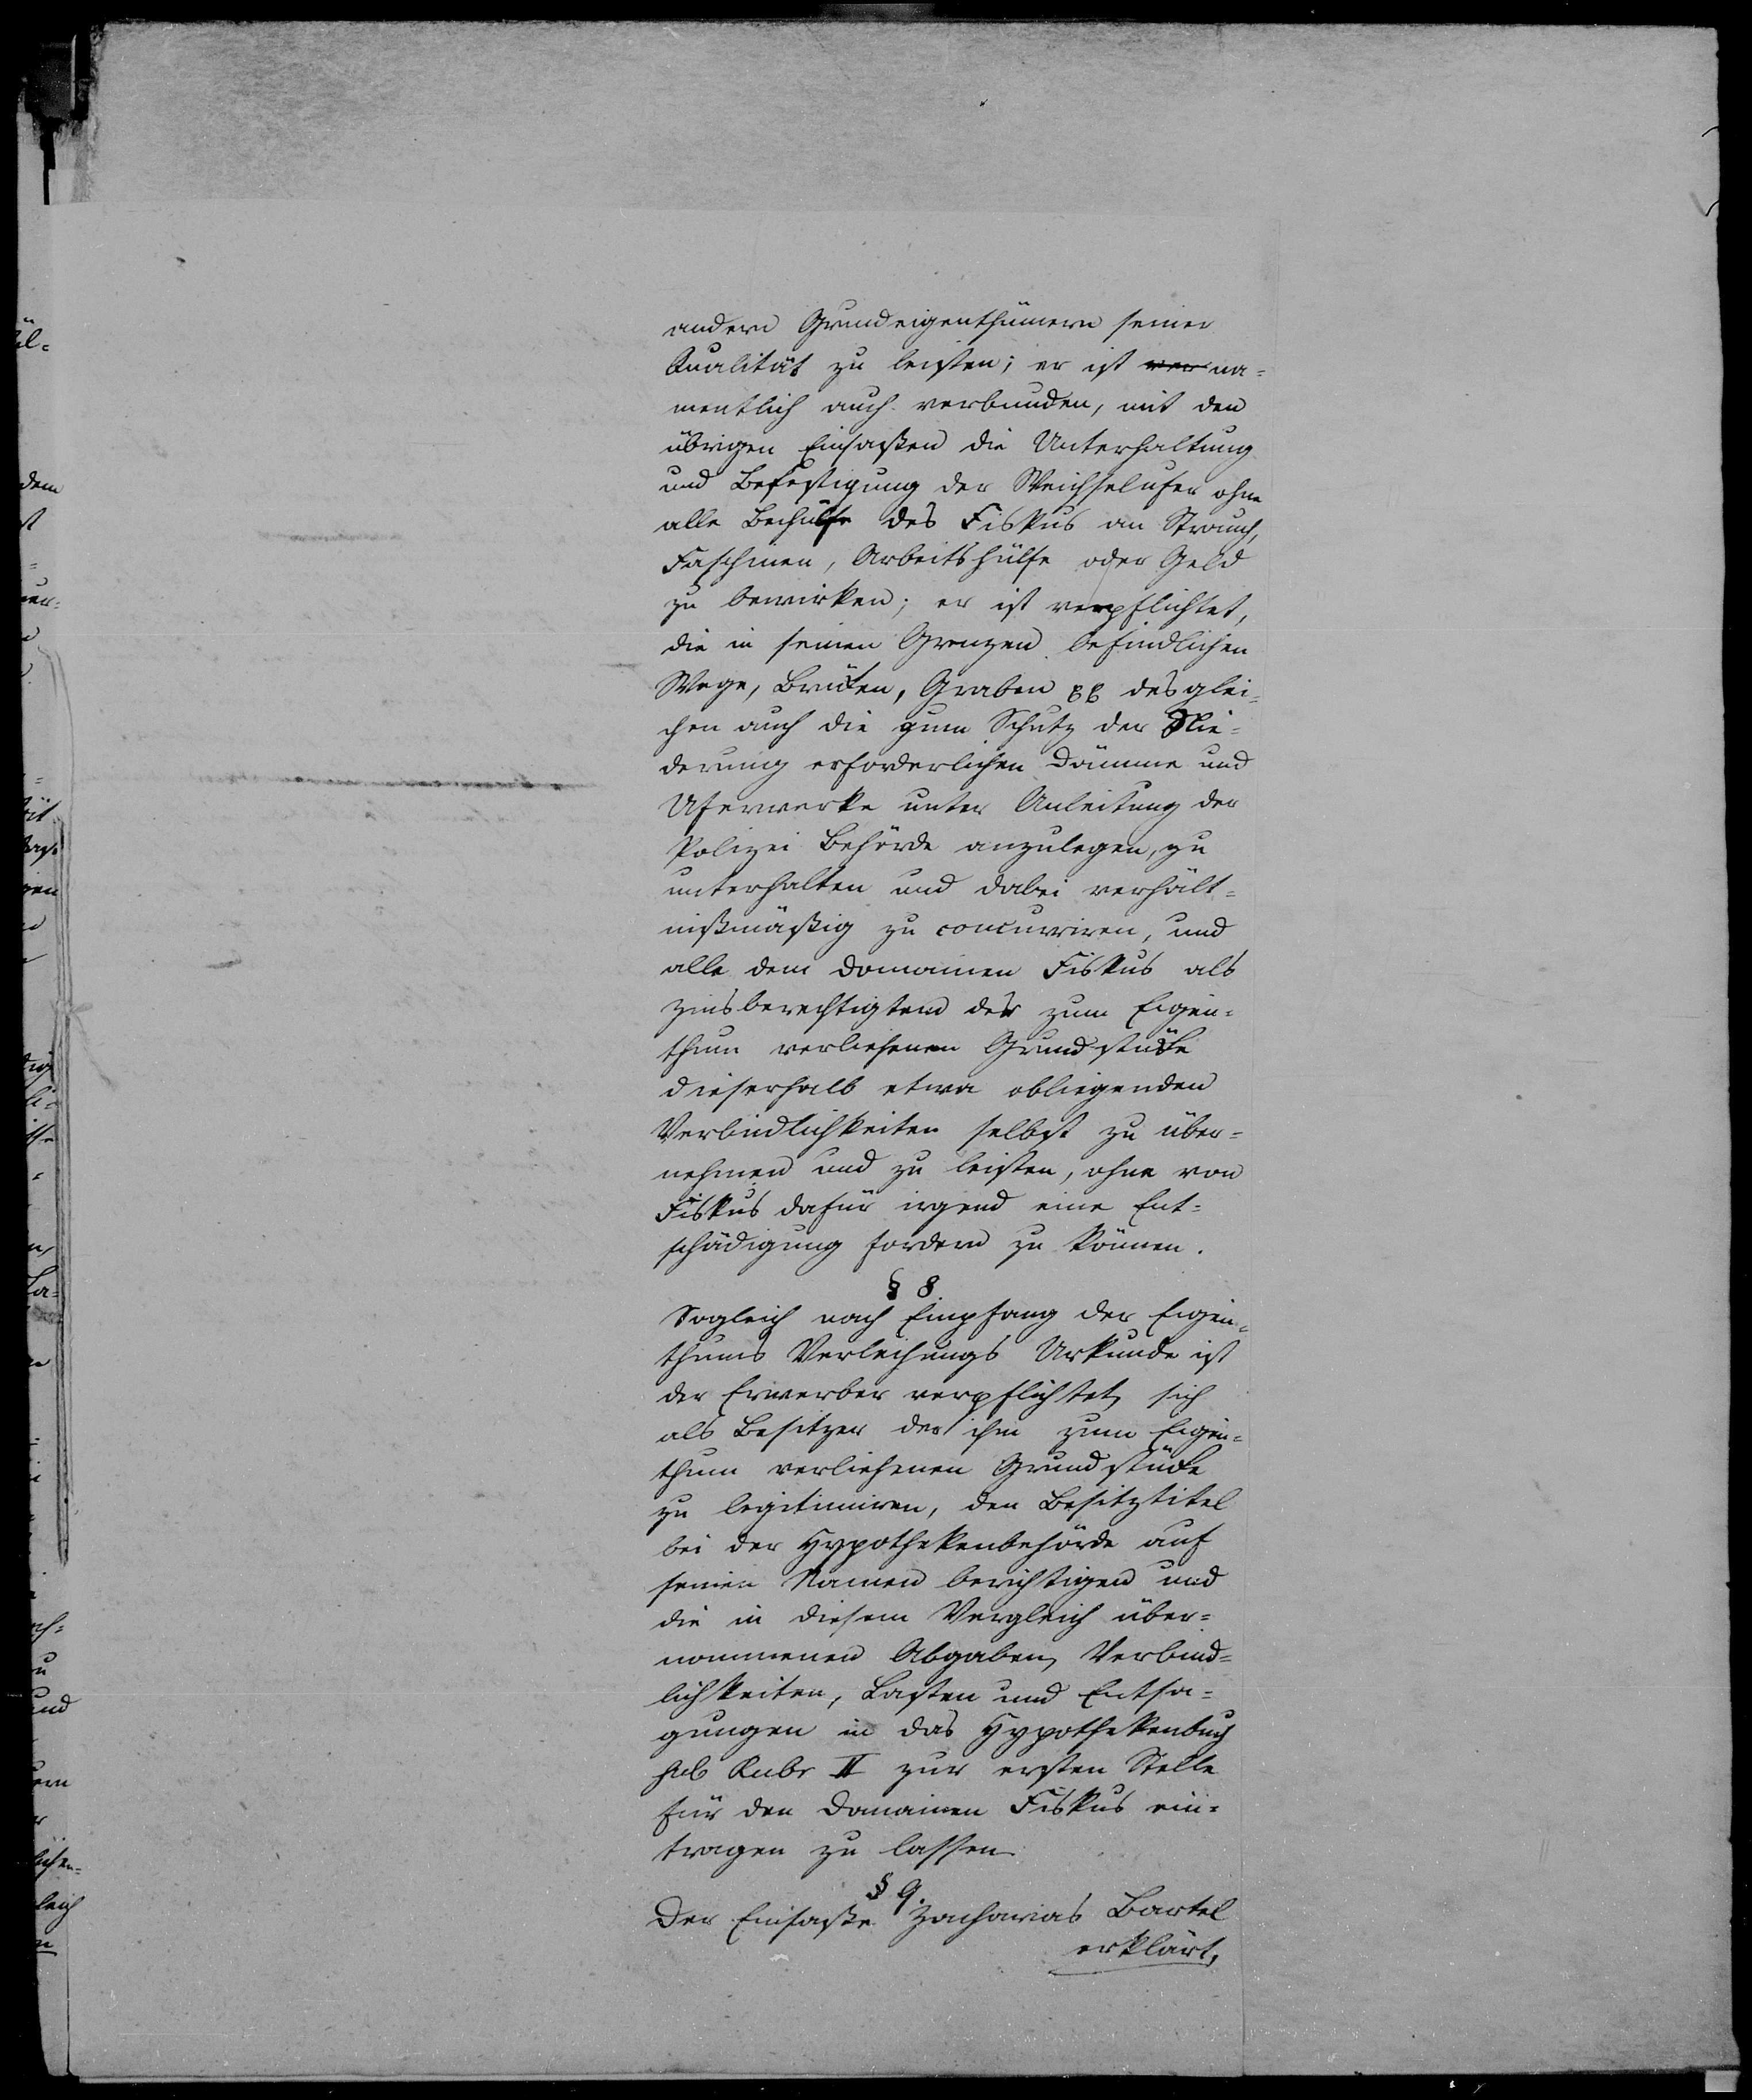 andern Grundeigenthümern seiner
Qualität zu leisten; er ist ver na-
mentlich auch verbunden, mit den
übrigen Einsaßen die Unterhaltung
und Befestigung der Weichselufer ohne
alle Beihülfe des Fiskus an Strauch,
Faschinen, Arbeitshülfe oder Geld
zu bewirken; er ist verpflichtet,
die in seinen Grenzen befindlichen
Wege, Brücken, Graben pp desglei-
chen auch die zum Schutz der Nie-
derung erforderlichen Dämme und
Uferwerke unter Anleitung der
Polizei Behörde anzulegen, zu
unterhalten und dabei verhält-
nißmäßig zu concurriren, und
alle dem Domainen Fiskus als
Zinsberechtigten der zum Eigen-
thum verliehenen Grundstücke
dieserhalb etwa obliegenden
Verbindlichkeiten selbst zu über-
nehmen und zu leisten, ohne von
Fiskus dafür irgend eine Ent-
schädigung fordern zu können.
§ 8
Sogleich nach Empfang der Eigen-
thums Verleihungs Urkunde ist
der Erwerber verpflichtet, sich
als Besitzer der ihm zum Eigen-
thum verliehenen Grundstücke
zu legitimiren, den Besitztitel
bei der Hypothekenbehörde auf
seinen Namen berichtigen und
die in diesem Vergleich über-
nommenen Abgaben, Verbind-
lichkeiten, Lasten und Entsa-
gungen in das Hypothekenbuch
sub Rubr II zur ersten Stelle
für den Domainen Fiskus ein-
tragen zu lassen
§ 9.
Der Einsaße Zacharias Bartel
erklärt,